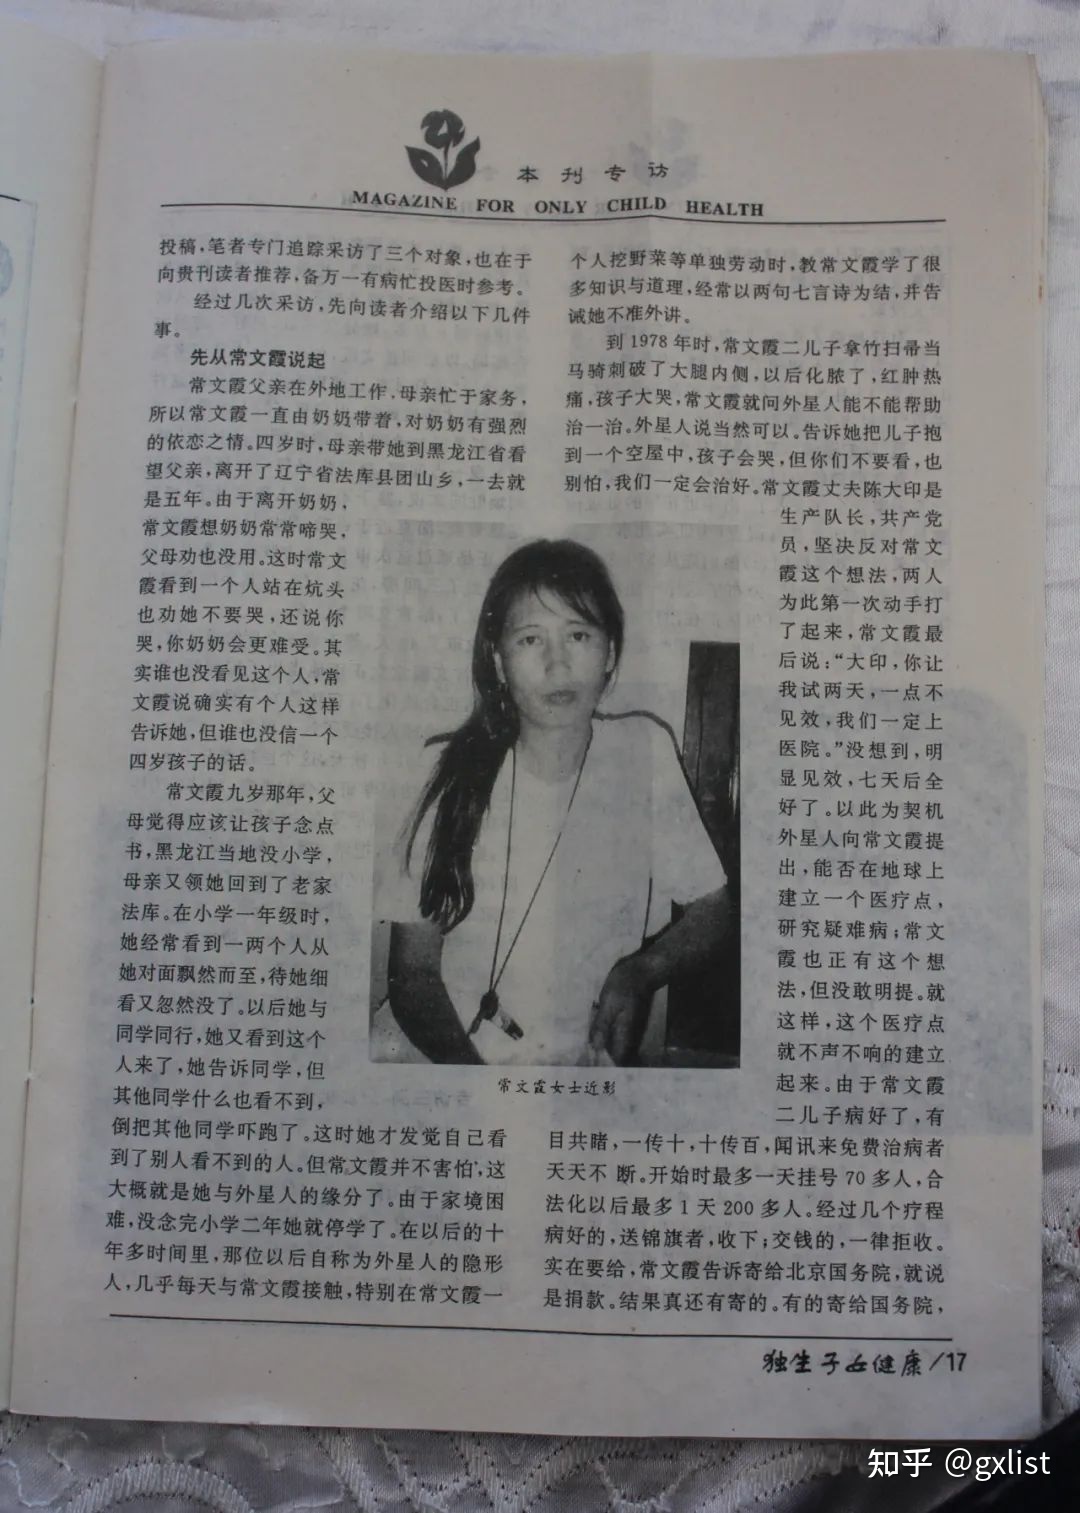 本刊专访
MAGAZINE FOR ONLY CHILD HEALTH
投稿，笔者专门追踪采访了三个对象，也在于
向贵刊读者推荐，备万一有病忙投医时参考。
经过几次采访，先向读者介绍以下几件
事。
先从常文霞说起
常文霞父亲在外地工作，母亲忙于家务，
所以常文霞一直由奶奶带着，对奶奶有强烈
的依恋之情。四岁时，母亲带她到黑龙江省看
望父亲，离开了辽宁省法库县团山乡，一去就
是五年。由于离开奶奶，
常文霞想奶奶常常啼哭，
父母劝也没用。这时常文
霞看到一个人站在炕头
也劝她不要哭，还说你
哭，你奶奶会更难受。其
实谁也没看见这个人，常
文霞说确实有个人这样
告诉她，但谁也没信一个
四岁孩子的话。
常文霞九岁那年，父
母觉得应该让孩子念点
书，黑龙江当地没小学，
母亲又领她回到了老家
法库。在小学一年级时，
她经常看到一两个人从
她对面飘然而至，待她细
看又忽然没了。以后她与
同学同行，她又看到这个
人来了，她告诉同学，但
其他同学什么也看不到，
倒把其他同学吓跑了。这时她才发觉自己看
到了别人看不到的人。但常文霞并不害怕，这
大概就是她与外星人的缘分了。由于家境困
难，没念完小学二年她就停学了。在以后的十
年多时间里，那位以后自称为外星人的隐形
人，几乎每天与常文霞接触，特别在常文霞一
个人挖野菜等单独劳动时，教常文霞学了很
多知识与道理，经常以两句七言诗为结，并告
诫她不准外讲。
到1978年时，常文霞二儿子拿竹扫帚当
马骑刺破了大腿内侧，以后化脓了，红肿热
痛，孩子大哭，常文霞就问外星人能不能帮助
治一治。外星人说当然可以。告诉她把儿子抱
到一个空屋中，孩子会哭，但你们不要看，也
别怕，我们一定会治好。常文霞丈夫陈大印是
生产队长，共产党
员，坚决反对常文
霞这个想法，两人
为此第一次动手打
了起来，常文霞最
后说：“大印，你让
我试两天，一点不
见效，我们一定上
医院。”没想到，明
显见效，七天后全
好了。以此为契机
外星人向常文霞提
出，能否在地球上
建立一个医疗点，
研究疑难病；常文
霞也正有这个想
法，但没敢明提。就
这样，这个医疗点
就不声不响的建立
起来。由于常文霞
二儿子病好了，有
目共睹，一传十，十传百，闻讯来免费治病者
天天不断。开始时最多一天挂号70多人，合
法化以后最多1天200多人。经过几个疗程
病好的，送锦旗者，收下；交钱的，一律拒收。
实在要给，常文霞告诉寄给北京国务院，就说
是捐款。结果真还有寄的。有的寄给国务院，
常文霞女士近影
独生子女健康/17
知乎 @gxlist